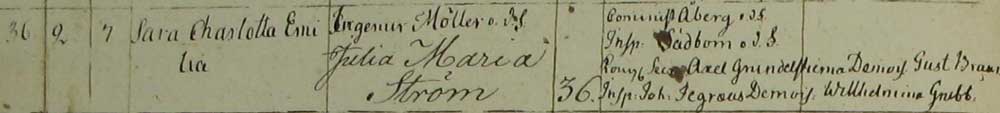 36 2 7 Sara Charlotta Emi
lia
Ingeniur Möller o. d. H.
Julia Maria
Ström 36.
Commiss Åberg o. d. H.
Insp: Sädbom o. d. H.
Kongl Secr Axel Grundelstierna Demois. Gust Braun
Insp: Joh. Tegræus Demois. Willhelmina Grubb.